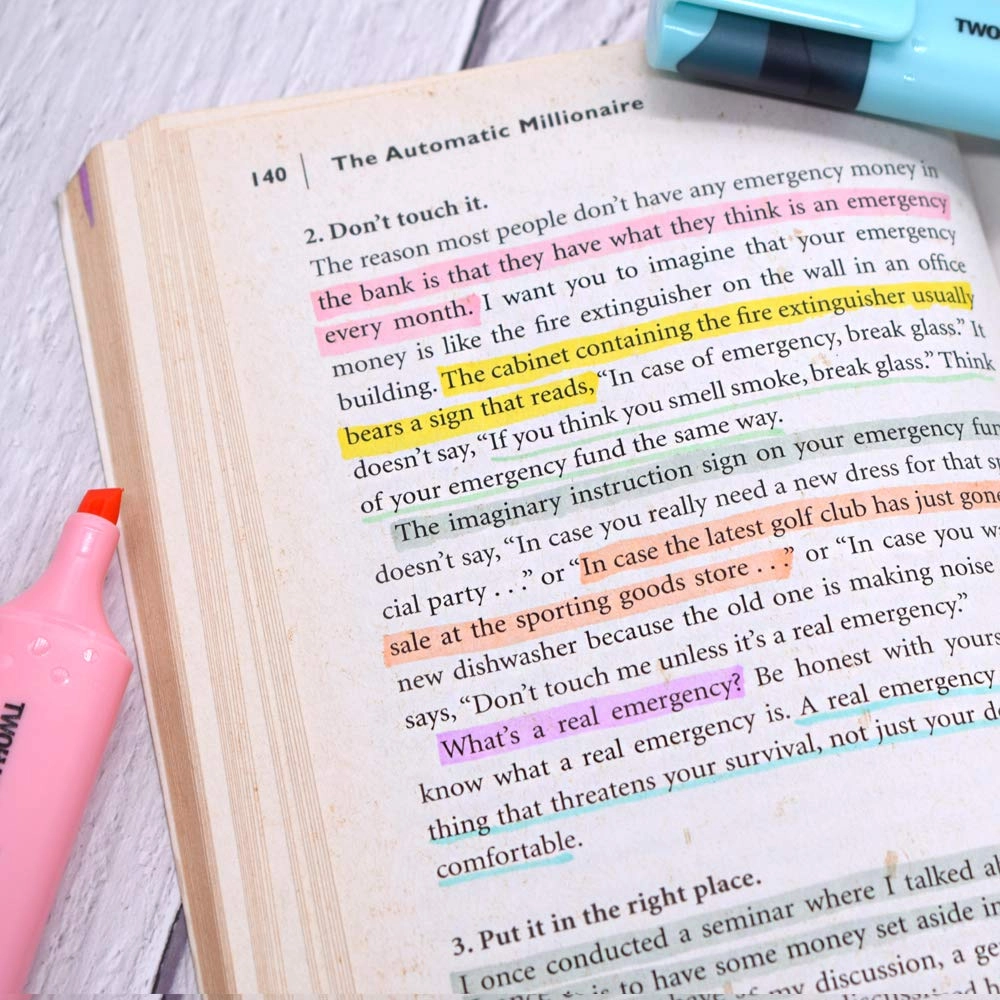 TWO
140 | The Automatic Millionaire
2. Don't touch it.
The reason most people don't have any emergency money in
the bank is that they have what they think is an emergency
every month. I want you to imagine that your emergency
money is like the fire extinguisher on the wall in an office
building. The cabinet containing the fire extinguisher usually
bears a sign that reads, “In case of emergency, break glass.” It
doesn't say, “If you think you smell smoke, break glass.” Think
of your emergency fund the same way.
The imaginary instruction sign on your emergency fun
doesn't say, “In case you really need a new dress for that sp
cial party . . .” or “In case the latest golf club has just gone
sale at the sporting goods store . . .” or “In case you w
new dishwasher because the old one is making noise
says, “Don't touch me unless it's a real emergency.”
What's a real emergency? Be honest with yours
know what a real emergency is. A real emergency
thing that threatens your survival, not just your de
comfortable.
3. Put it in the right place.
I once conducted a seminar where I talked a
is to have some money set aside in
of my discussion, a ge
TWO